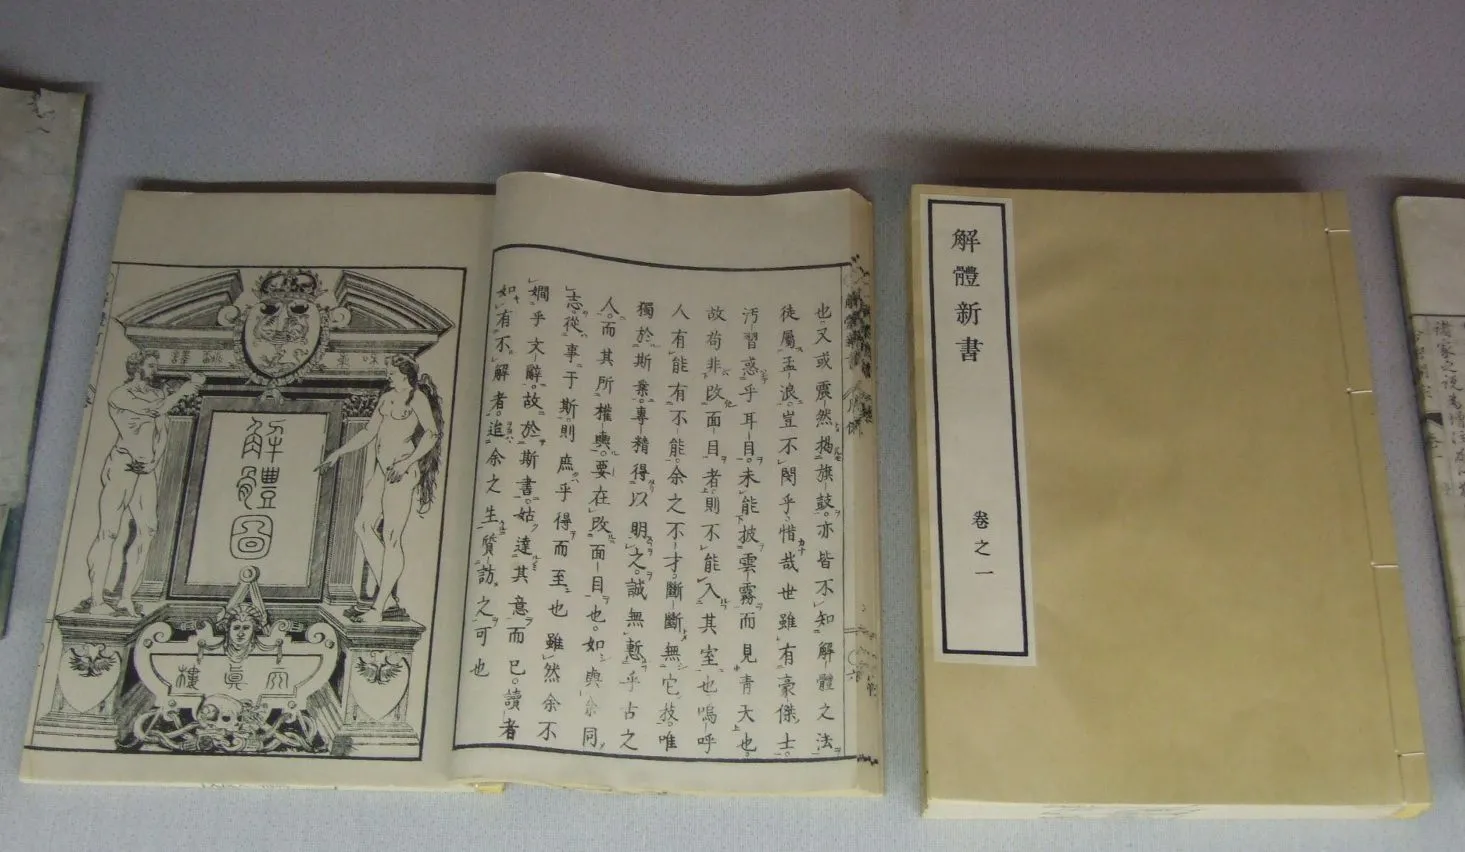 解體新書
卷之一
也又或震然揭旗鼓。亦皆不知解體之法
徒屬孟浪。豈不閔乎惜哉世雖有豪傑士。
汚習惑乎耳目。未能披雲霧而見青天也。
故苟非改面目者。則不能入其室也嗚呼
人有能有不能。余之不才。斷斷無它技。唯
獨於斯業。專精得以明之。誠無慙乎古之
人。而其所權輿。要在改面目也。如與余同
志。從事于斯。則庶乎得而至也雖然余不
嫺乎文辭。故於斯書。姑達其意而已。讀者
如有不解者。追余之生質訪之可也
解體圖
天眞樓